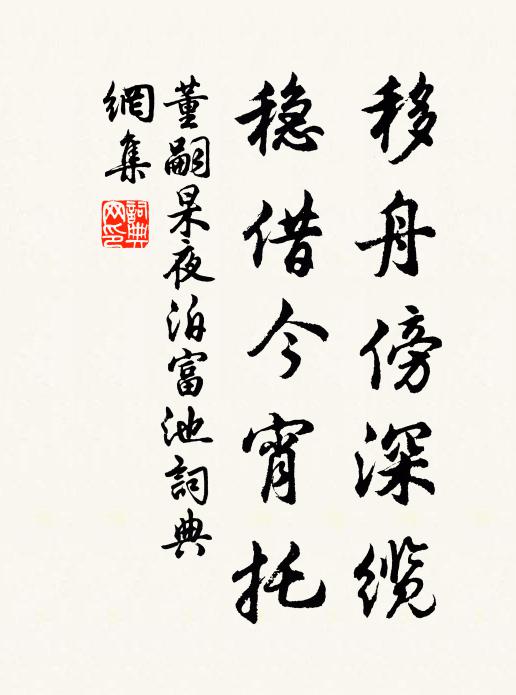 移舟傍深缆
稳借今宵托
董嗣杲夜泊富池詞典
網集
詞典网印